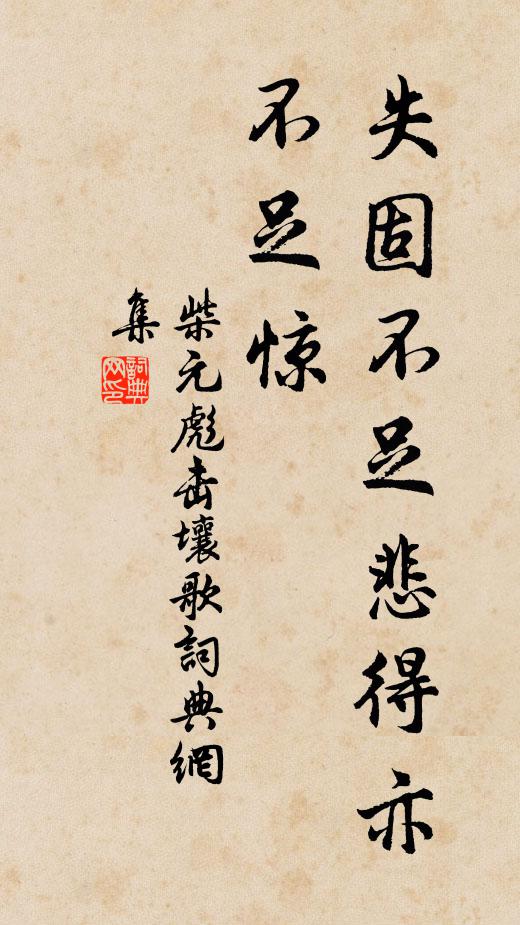 失固不足悲得亦
不足惊
柴元彪击壤歌詞典網
集
詞典
网印